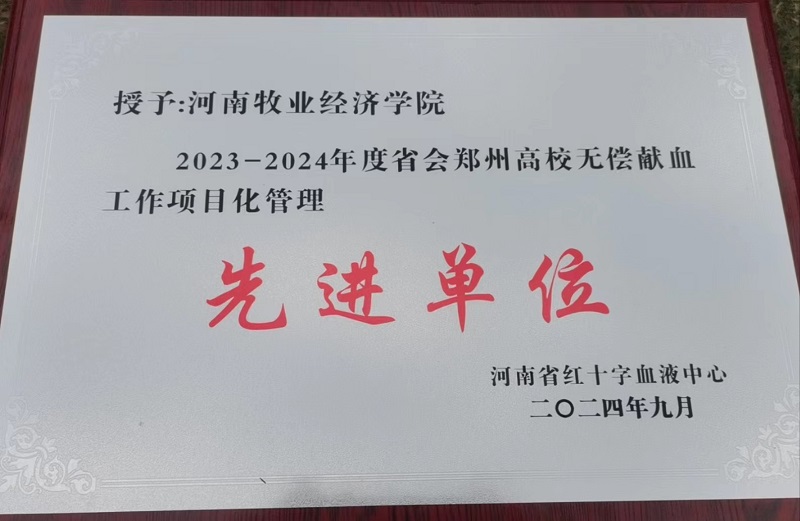 授予:河南牧业经济学院
2023-2024年度省会郑州高校无偿献血
工作项目化管理
先进单位
河南省红十字血液中心
二〇二四年九月